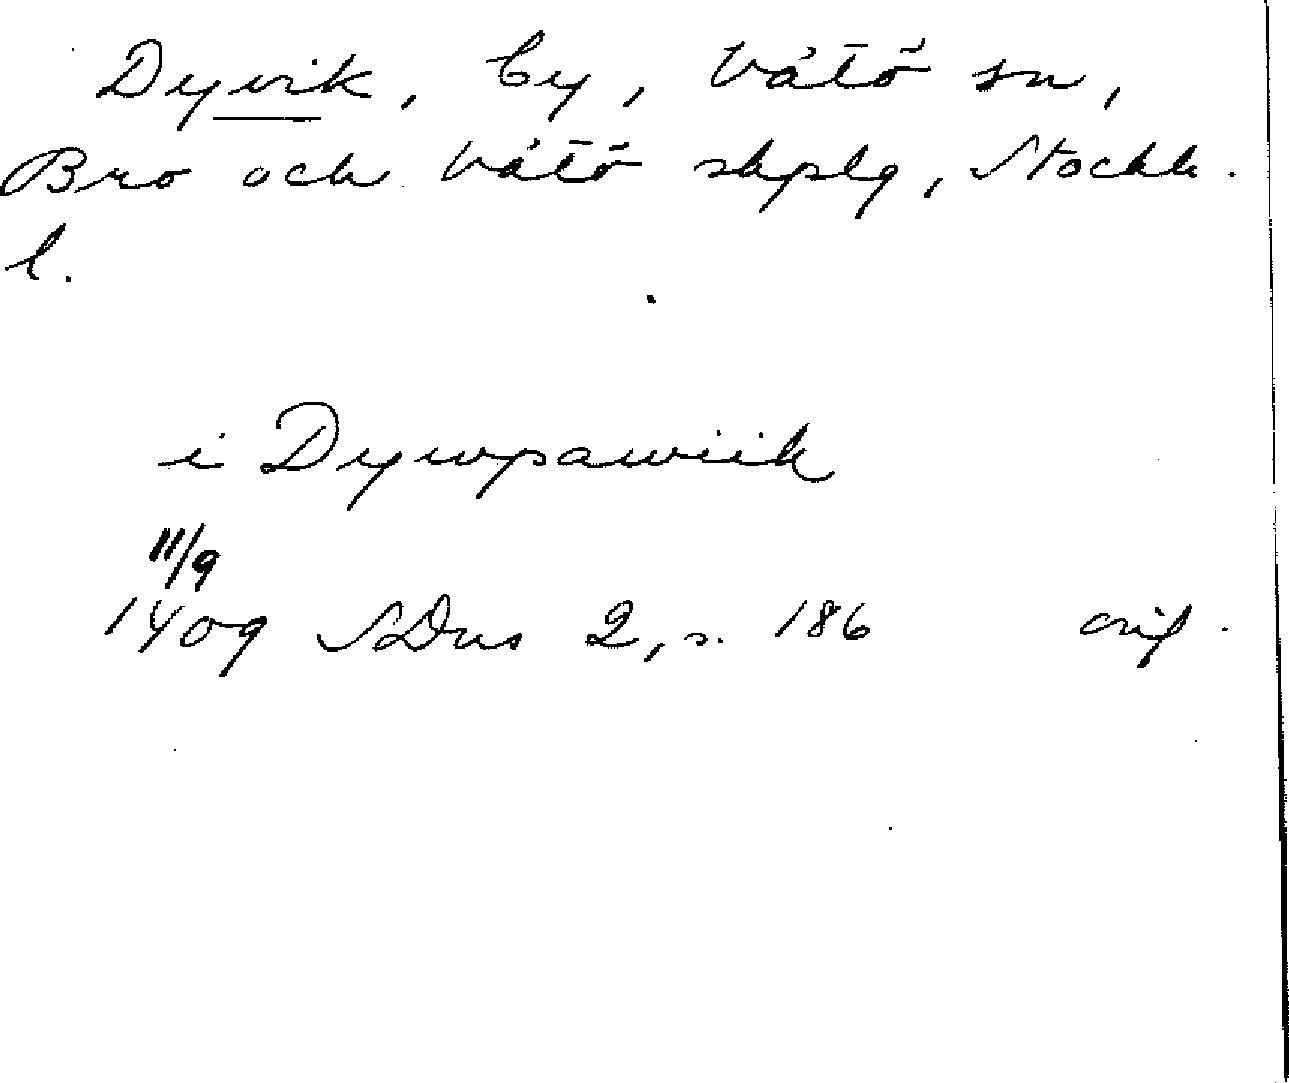 Dyvik, by, Vätö sn,
Bro och Vätö skplg, Stockh.
l.
i Dywpawiik
11/9
1409 SDns 2, s. 186 orig.